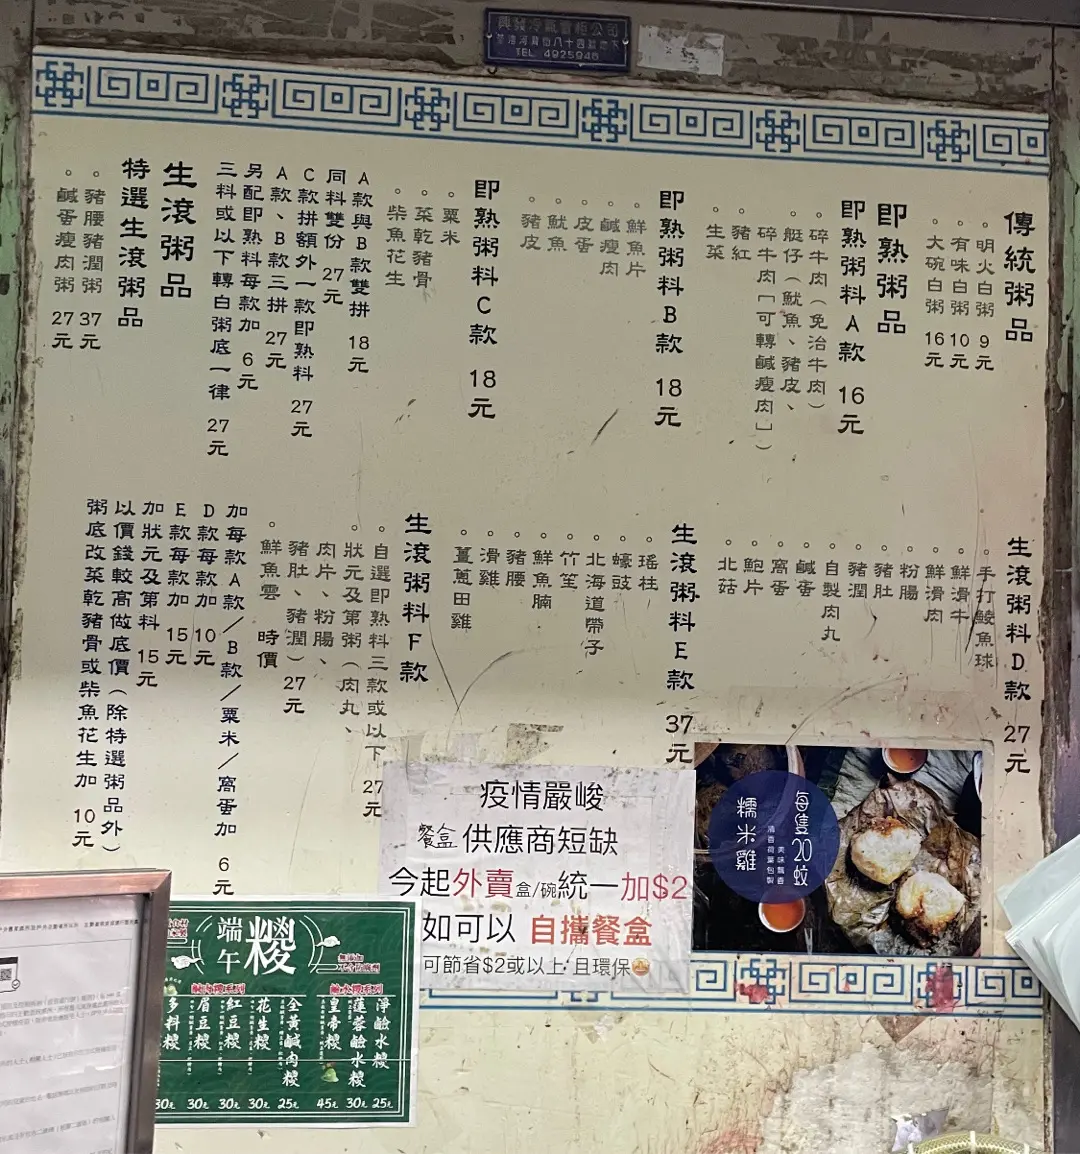 興發冷氣雪柜公司
TEL 4925946
傳統粥品
。明火白粥 9元
。有味白粥 10元
。大碗白粥 16元
即熟粥品
即熟粥料A款 16元
。碎牛肉(免治牛肉)
。艇仔(魷魚、豬皮、
碎牛肉「可轉鹹瘦肉」)
。豬紅
。生菜
即熟粥料B款 18元
。鮮魚片
。鹹瘦肉
。皮蛋
。魷魚
。豬皮
即熟粥料C款 18元
。粟米
。菜乾豬骨
。柴魚花生
A款與B款雙拼 18元
同料雙份 27元
C款拼額外一款即熟料 27元
A款、B款三拼 27元
另配即熟料每款加 6元
三料或以下轉白粥底一律 27元
生滾粥品
特選生滾粥品
。豬腰豬潤粥 37元
。鹹蛋瘦肉粥 27元
生滾粥料D款 27元
。手打鯪魚球
。鮮滑牛
。鮮滑肉
。粉腸
。豬肚
。豬潤
。自製肉丸
。鹹蛋
。窩蛋
。鮑片
。北菇
生滾粥料E款 37元
。瑤柱
。蠔豉
。北海道帶子
。竹笙
。鮮魚腩
。豬腰
。滑雞
。薑蔥田雞
生滾粥料F款
。自選即熟料三款或以下 27元
。狀元及第粥(肉丸、
肉片、粉腸、
豬肚、豬潤) 27元
。鮮魚雲 時價
加每款A款/B款/粟米/窩蛋加 6元
D款每款加 10元
E款每款加 15元
加狀元及第料 15元
以價錢較高做底價(除特選粥品外)
粥底改菜乾豬骨或柴魚花生加 10元
疫情嚴峻
餐盒供應商短缺
今起外賣盒/碗統一加$2
如可以 自攜餐盒
可節省$2或以上 且環保
每隻20蚊
糯米雞
端午糉
淨鹼水糉 25元
蓮蓉鹼水糉 30元
皇帝糉 45元
全黃鹹肉糉 25元
花生糉 30元
紅豆糉 30元
眉豆糉 30元
多料糉 30元